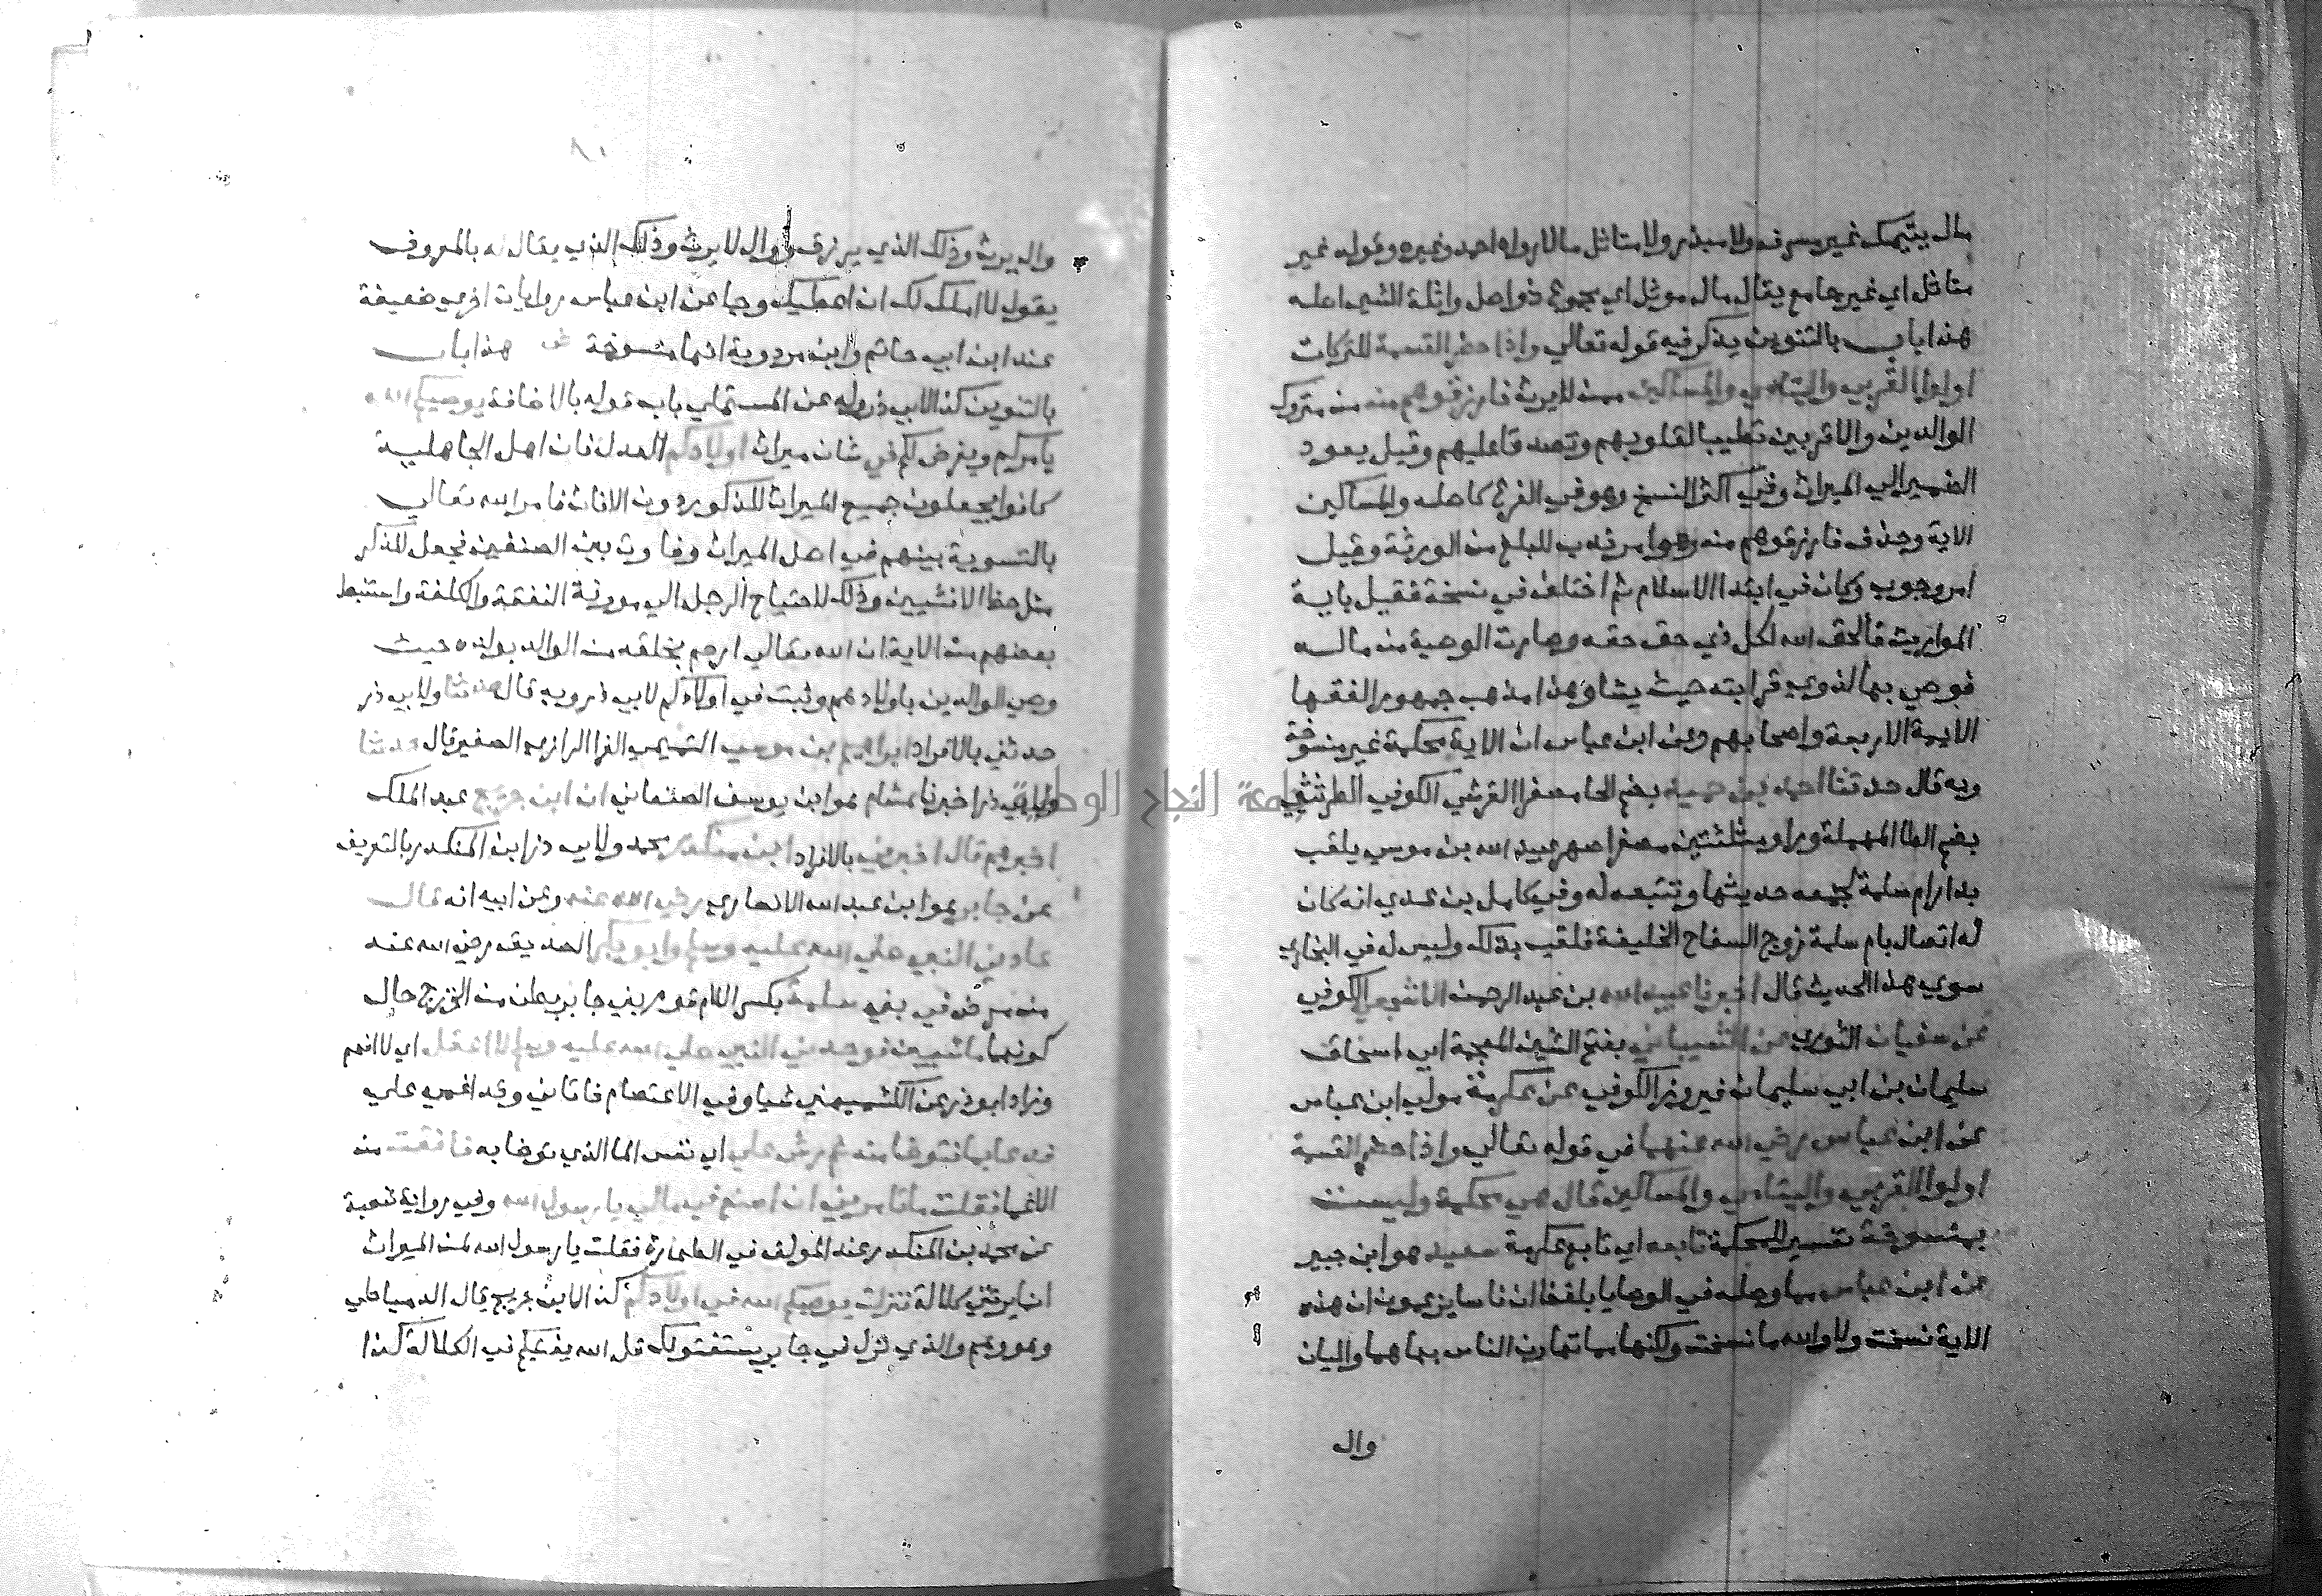 مال يتيمك غير مسرف ولا مبذر ولا متاثل مالا رواه احمد وغيره وقوله غير
متاثل اي غير جامع يقال مال موثل اي مجموع ذو اصل واثلة الشي اصله
هذا باب بالتنوين يذكر فيه قوله تعالي واذا حضر القسمة للتركات
اولوا القربي واليتامي والمساكين ممن لا يرث فارزقوهم منه من متروك
الوالدين والاقربين تطييبا لقلوبهم وتصدقا عليهم وقيل يعود
الضمير الي الميراث وفي اكثر النسخ وهو في الفرع كاصله والمساكين
الاية وحذف فارزقوهم منه وهو امر ندب للبلغ من الورثة وقيل
امر وجوب وكان في ابتدا الاسلام ثم اختلف في نسخه فقيل باية
المواريث فالحق الله لكل ذي حق حقه وصارت الوصية من ماله
فوصي بها لذوي قرابته حيث يشا وهذا مذهب جمهور الفقها
الايمة الاربعة واصحابهم وعن ابن عباس ان الاية محكمة غير منسوخة
وبه قال حدثنا احمد بن حميد بضم الحا مصغرا القرشي الكوفي الطرثيثي
بضم الطا المهملة ورا ومثلثتين مصغرا صهر عبيد الله بن موسي يلقب
بدار ام سلمة لجمعه حديثها وتتبعه له وفي كامل بن عدي انه كان
له اتصال بام سلمة زوج السفاح الخليفة فلقب بذلك وليس له في البخاري
سوي هذا الحديث قال اخبرنا عبيد الله بن عبد الرحمن الاشجعي الكوفي
عن سفيان الثوري عن الشيباني بفتح الشين المعجمة ابي اسحاق
سليمان بن ابي سليمان فيروز الكوفي عن عكرمة مولي ابن عباس
عن ابن عباس رضي الله عنهما في قوله تعالي واذا حضر القسمة
اولوا القربي واليتامي والمساكين قال هي محكمة وليست
بمنسوخة تفسير للمحكمة تابعه اي تابع عكرمة سعيد هو ابن جبير
عن ابن عباس مما وصله في الوصايا بلفظ ان ناسا يزعمون ان هذه
الاية نسخت ولا والله ما نسخت ولكنها مما تهاون الناس بها هما واليان
وال
والد يرث وذلك الذي يرزق ووال لا يرث وذلك الذي يقال له بالمعروف
يقول لا املك لك ان اعطيك وجا عن ابن عباس روايات اخري ضعيفة
عند ابن ابي حاتم وابن مردوية انها منسوخة هذا باب
بالتنوين كذا لابي ذر وله عن المستملي باب قوله بالاضافة يوصيكم الله
يامركم ويفرض لكم في شان ميراث اولادكم العدل فان اهل الجاهلية
كانوا يجعلون جميع الميراث للذكور دون الاناث فامر الله تعالي
بالتسوية بينهم في اصل الميراث وفاوت بين الصنفين فجعل للذكر
مثل حظ الانثيين وذلك لاحتياج الرجل الي مورنة النفقة والكلفة واستنبط
بعضهم من الاية ان الله تعالي ارحم بخلقه من الوالد بولده حيث
وصي الوالدين باولادهم وثبت في اولادكم لابي ذر وبه قال حدثنا ولابي ذر
حدثني بالافراد ابراهيم بن موسي التميمي الفرا الرازي الصغير قال حدثنا
ولابي ذر اخبرنا هشام هو ابن يوسف الصنعاني ان ابن جريج عبد الملك
اخبرهم قال اخبرني بالافراد ابن منكدر محمد ولابي ذر ابن المنكدر بالتعريف
عن جابر هو ابن عبد الله الانصاري رضي الله عنه وعن ابيه انه قال
عادني النبي صلي الله عليه وسلم وابو بكر الصديق رضي الله عنه
من مرض في بني سلمة بكسر اللام قوم بني جابر بطن من الخزرج حال
كونهما ماشيين فوجدني النبي صلي الله عليه وسلم لا اعقل اي لا افهم
وزاد ابو ذر عن الكشميهني شيا وفي الاعتصام فاتاني وقد اغمي علي
فدعا بما فتوضا منه ثم رش علي اي نفس الما الذي توضا به فافقت من
الاغما فقلت ما تامرني ان اصنع في مالي يا رسول الله وفي رواية شعبة
عن محمد بن المنكدر عند المولف في الطهارة فقلت يا رسول الله لمن الميراث
انما يرثني كلالة فنزلت يوصيكم الله في اولادكم كذا لابن جريج قال الدمياطي
وهو وهم والذي نزل في جابر يستفتونك قل الله يفتيكم في الكلالة كذا
جامعة النجاح الوطنية